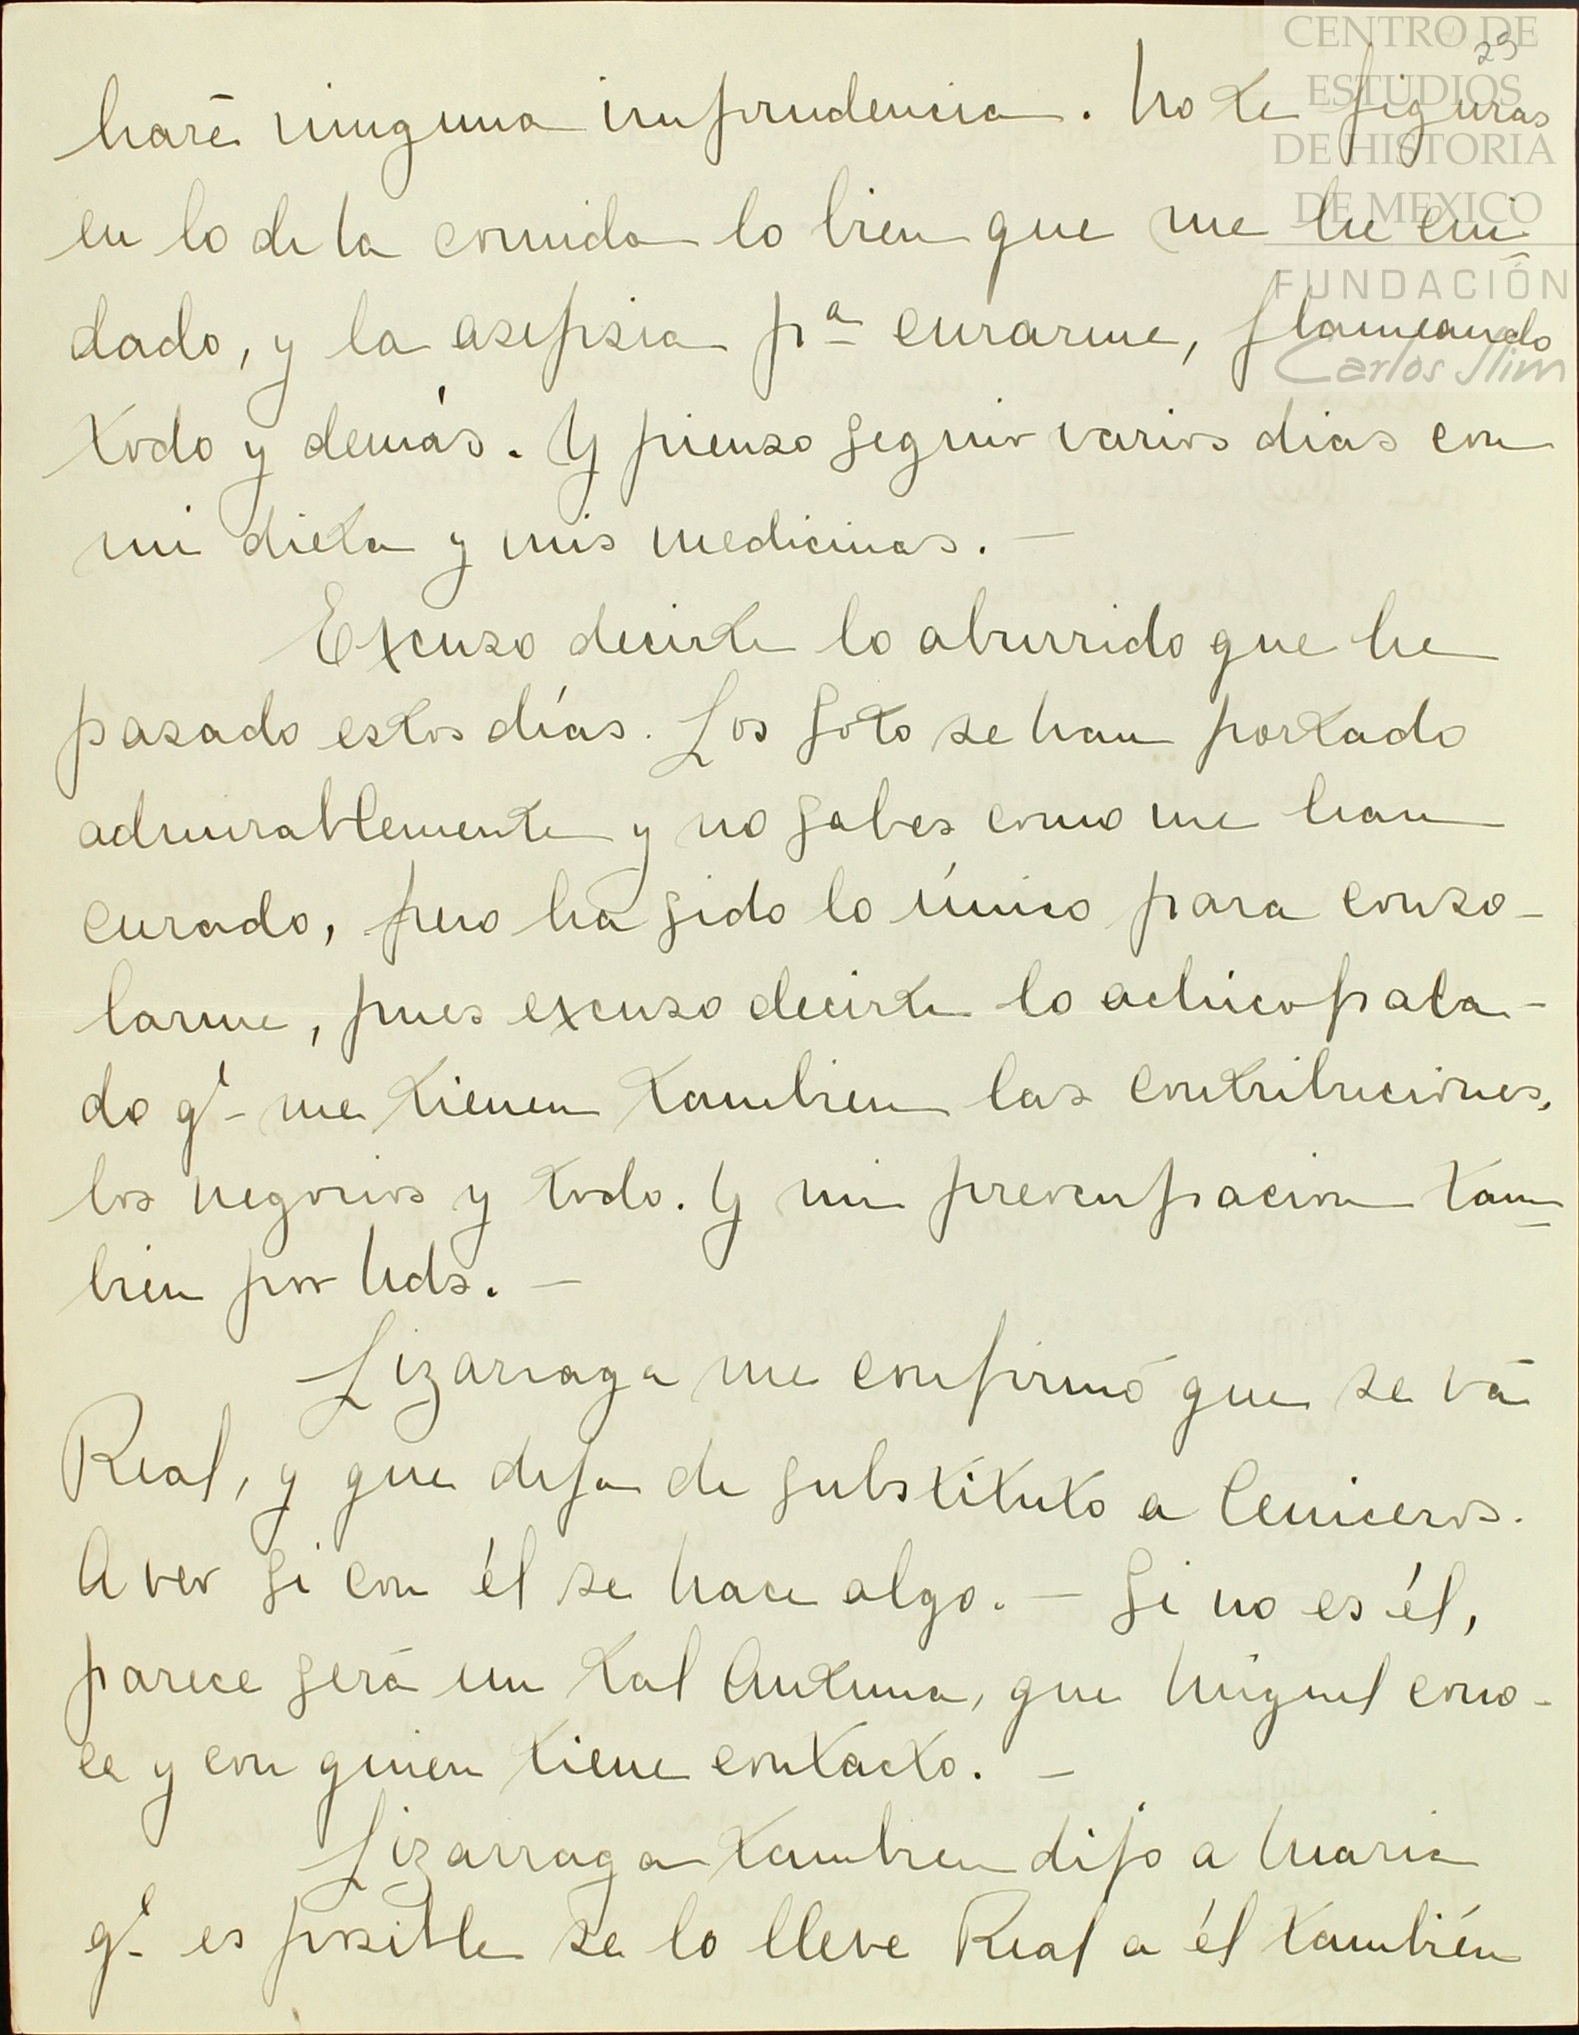 CENTRO DE
ESTUDIOS
DE HISTORIA
DE MEXICO
FUNDACIÓN
Carlos Slim
29
haré ninguna imprudencia. No te figuras
en lo de la comida lo bien que me he cui
dado, y la asepsia pª curarme, flameando
todo y demás. Y pienso seguir varios dias con
mi dieta y mis medicinas. —
Excuso decirte lo aburrido que he
pasado estos días. Los Soto se han portado
admirablemente y no sabes como me han
curado, pero ha sido lo único para conso-
larme, pues excuso decirte lo achicopala-
do qᵉ me tienen tambien las contribuciones,
los negocios y todo. Y mi preocupacion tam
bien por Uds. —
Lizarraga me confirmó que se vá
Real, y que deja de substituto a Ceniceros.
A ver si con él se hace algo. — Si no es él,
parece será un tal Antuna, que Miguel cono-
ce y con quien tiene contacto. —
Lizarraga tambien dijo a Maria
qᵉ es posible se lo lleve Real a él también